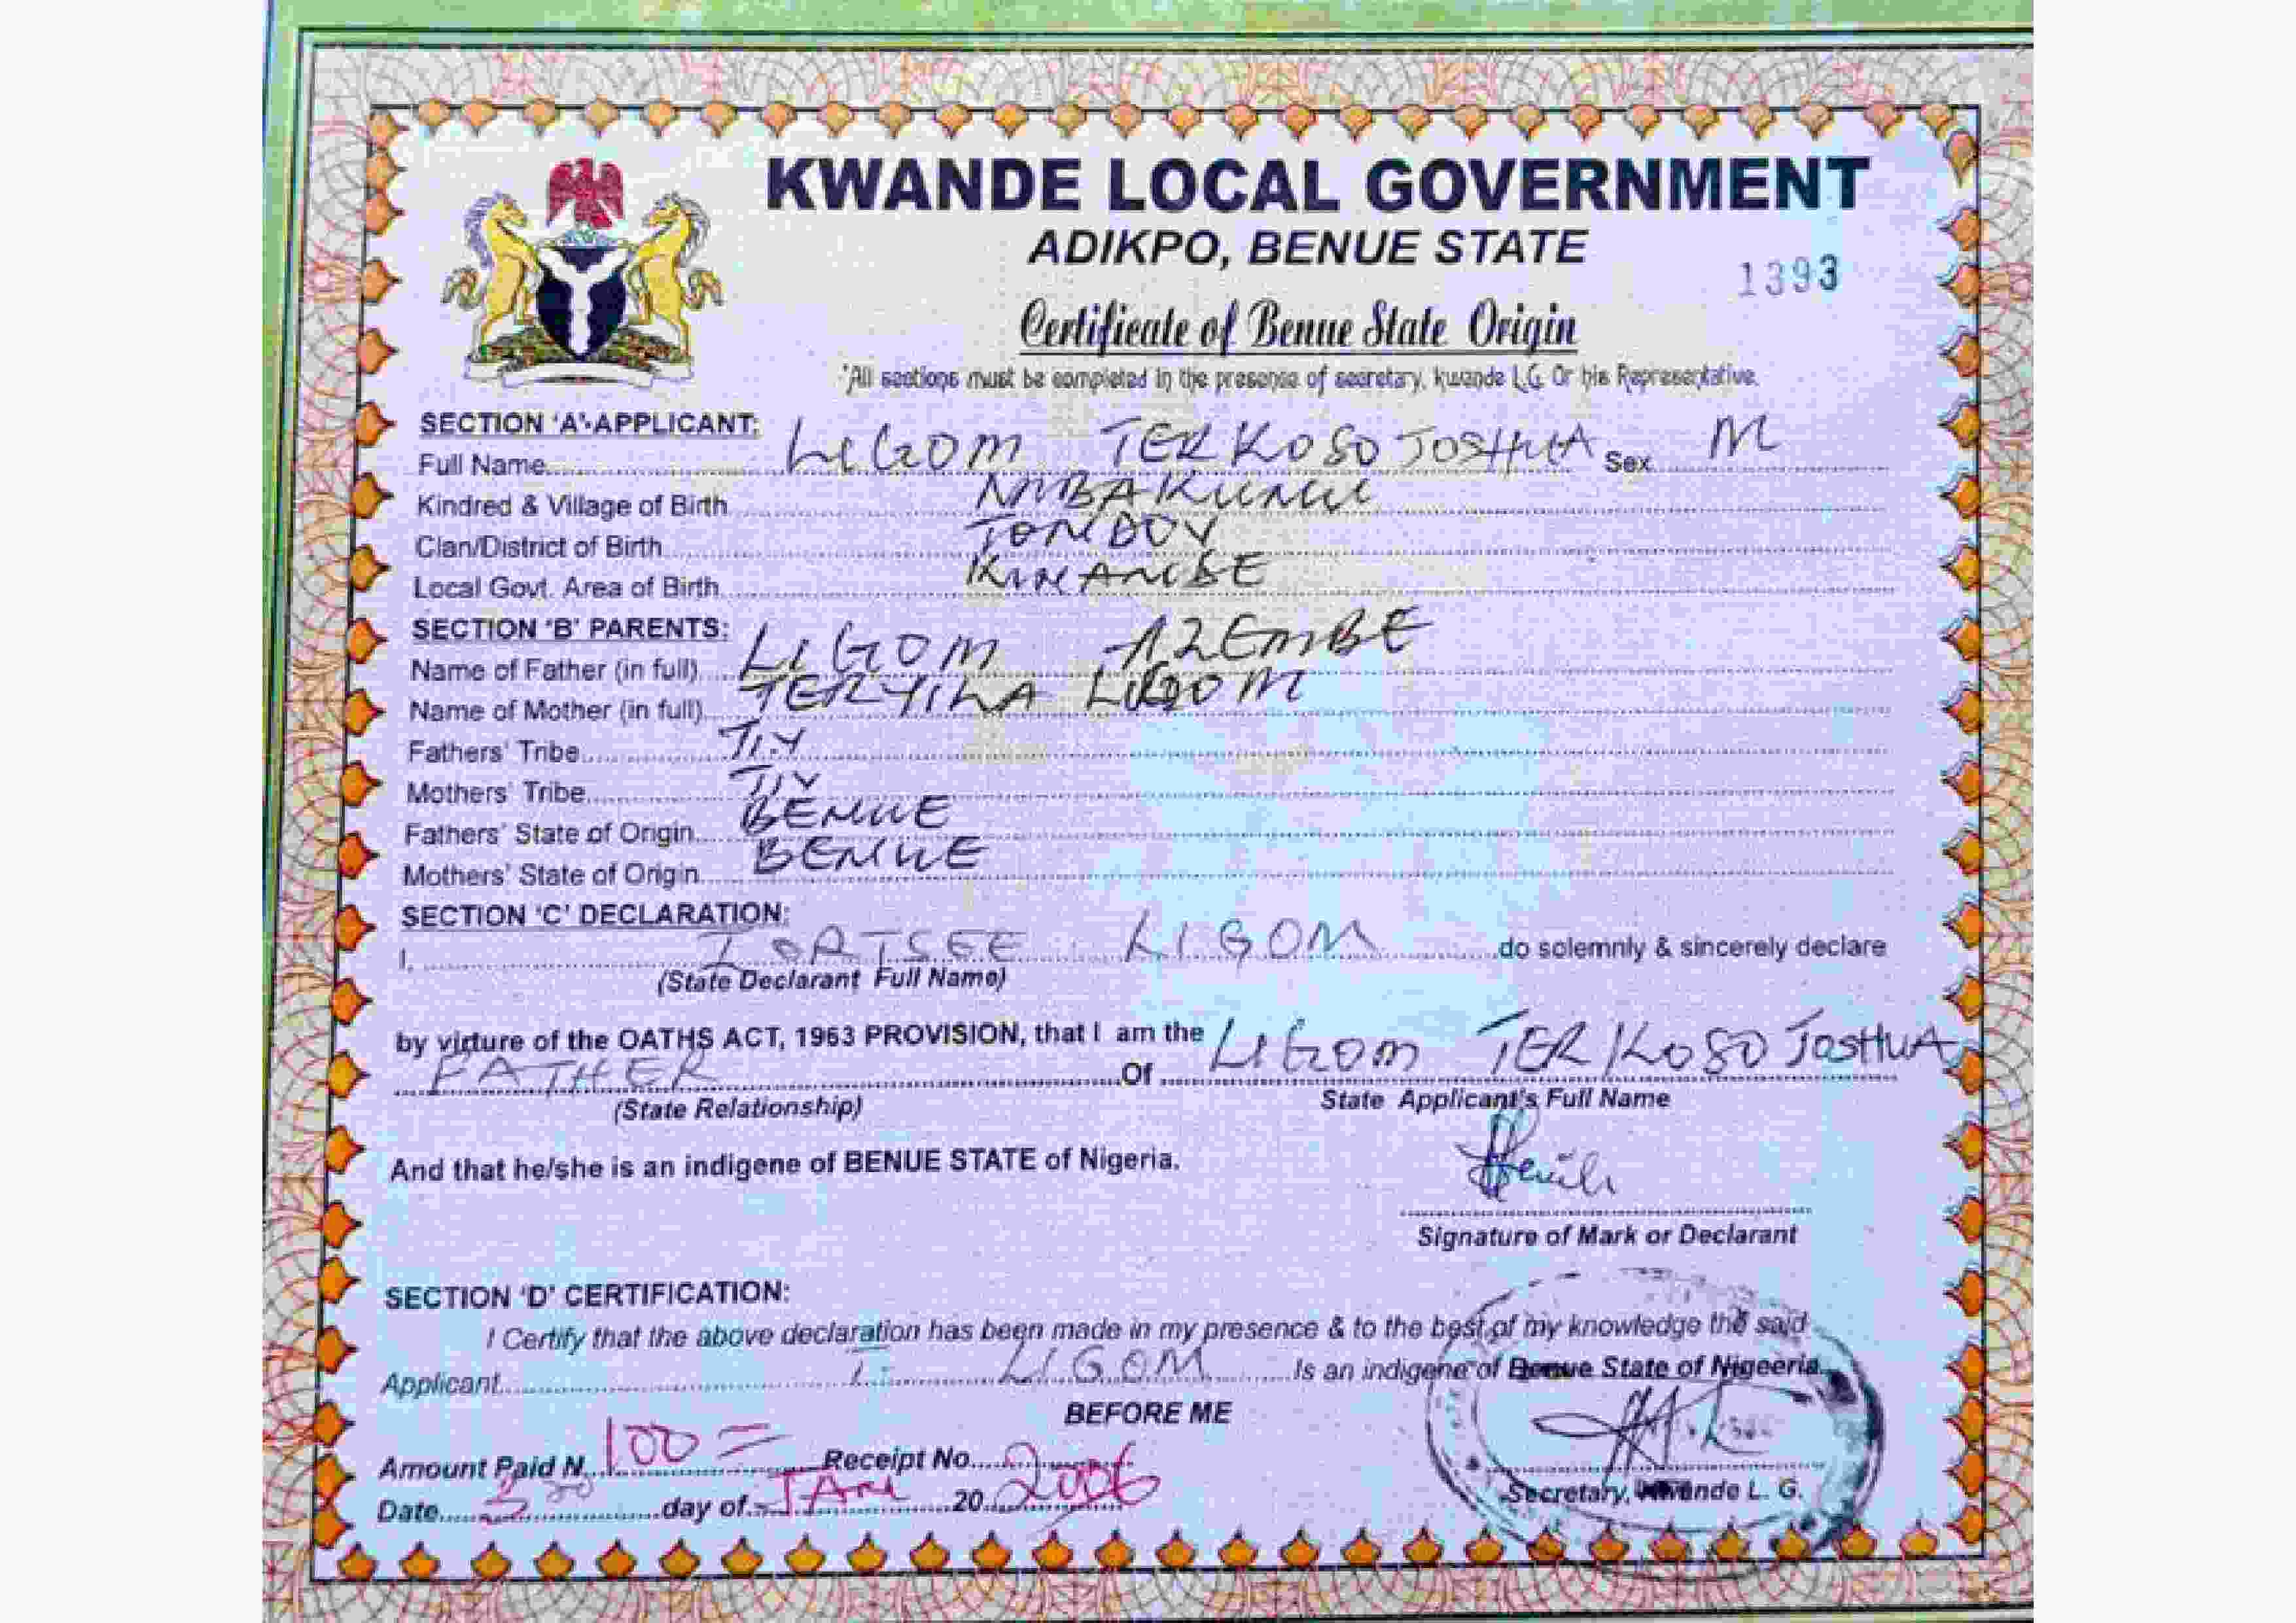 KWANDE LOCAL GOVERNMENT
ADIKPO, BENUE STATE
1393
Certificate of Benue State Origin
*All sections must be completed in the presence of secretary, kwande L.G. Or his Representative.
SECTION 'A'-APPLICANT:
Full Name LIGOM TERKOSO JOSHUA Sex M
Kindred & Village of Birth MBAKUNU
Clan/District of Birth TONDOV
Local Govt. Area of Birth KWANDE
SECTION 'B' PARENTS:
Name of Father (in full) LIGOM AZEMBE
Name of Mother (in full) TERYILA LIGOM
Fathers' Tribe TIV
Mothers' Tribe TIV
Fathers' State of Origin BENUE
Mothers' State of Origin BENUE
SECTION 'C' DECLARATION:
I, IORTSEE LIGOM do solemnly & sincerely declare
(State Declarant Full Name)
by virture of the OATHS ACT, 1963 PROVISION, that I am the
FATHER Of LIGOM TERKOSO JOSHUA
(State Relationship) State Applicant's Full Name
And that he/she is an indigene of BENUE STATE of Nigeria.
Signature of Mark or Declarant
SECTION 'D' CERTIFICATION:
I Certify that the above declaration has been made in my presence & to the best of my knowledge the said
Applicant T. LIGOM Is an indigene of Benue State of Nigeeria
BEFORE ME
Amount Paid N 100= Receipt No
Date day of JAN 20 2006
Secretary, Kwande L. G.